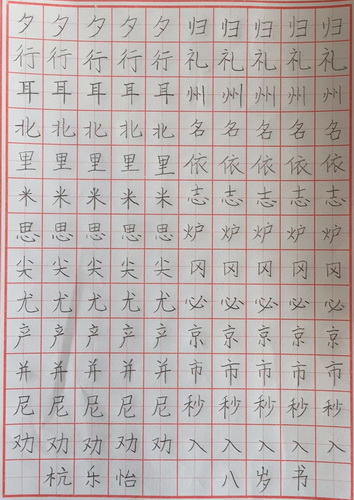 夕夕夕夕夕归归归归归
行行行行行礼礼礼礼礼
耳耳耳耳耳州州州州州
北北北北北名名名名名
里里里里里依依依依依
米米米米米志志志志志
思思思思思炉炉炉炉炉
尖尖尖尖尖冈冈冈冈冈
尤尤尤尤尤必必必必必
产产产产产京京京京京
并并并并并市市市市市
尼尼尼尼尼秒秒秒秒秒
劝劝劝劝劝入入入入入
杭乐怡 八岁书